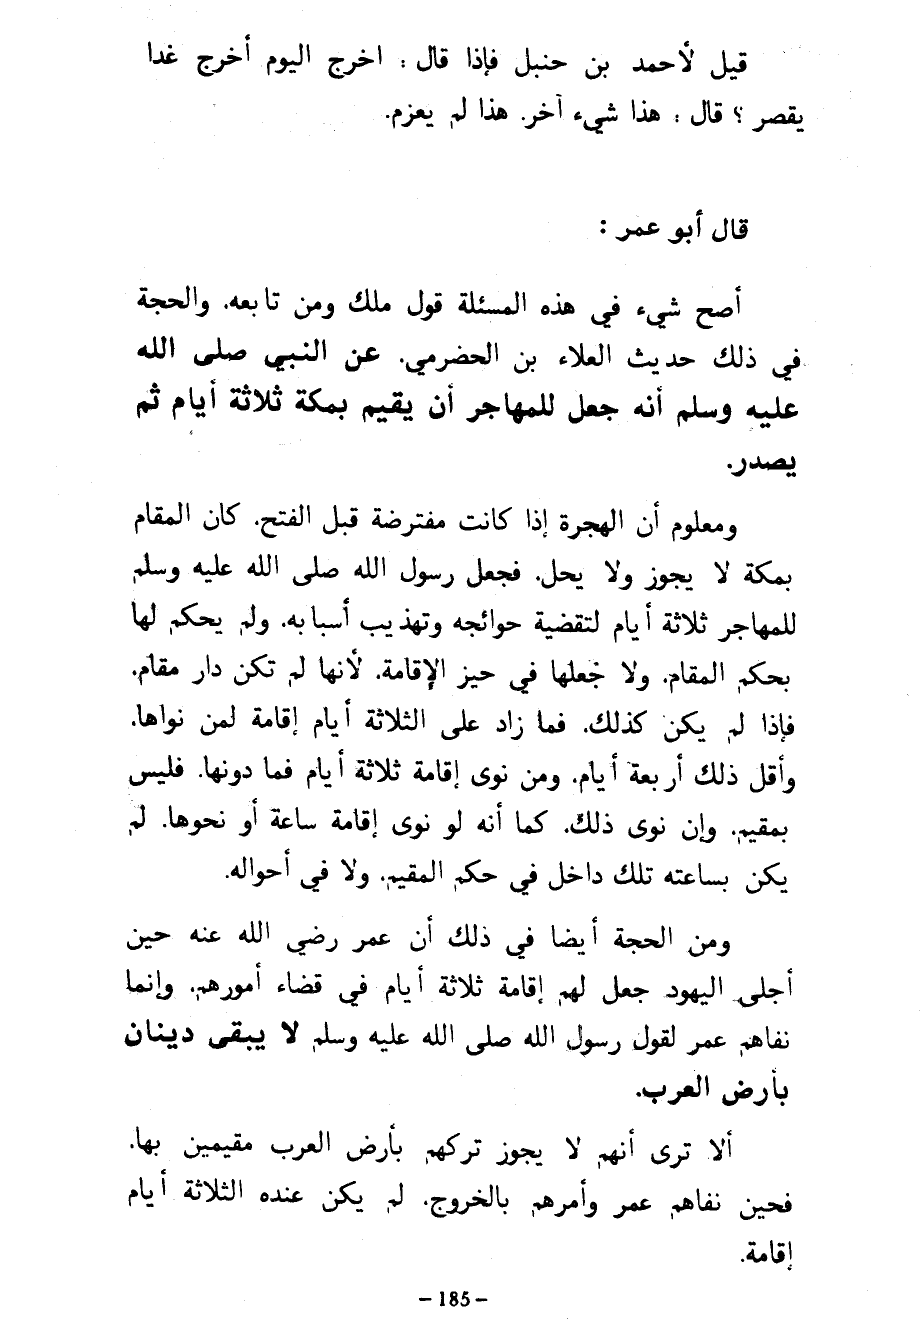 قيل لأحمد بن حنبل فإذا قال : اخرج اليوم أخرج غدا
يقصر ؟ قال : هذا شيء آخر. هذا لم يعزم.
قال أبو عمر :
أصح شيء في هذه المسئلة قول ملك ومن تابعه. والحجة
في ذلك حديث العلاء بن الحضرمي. عن النبي صلى الله
عليه وسلم أنه جعل للمهاجر أن يقيم بمكة ثلاثة أيام ثم
يصدر.
ومعلوم أن الهجرة إذا كانت مفترضة قبل الفتح. كان المقام
بمكة لا يجوز ولا يحل. فجعل رسول الله صلى الله عليه وسلم
للمهاجر ثلاثة أيام لتقضية حوائجه وتهذيب أسبابه. ولم يحكم لها
بحكم المقام. ولا جعلها في حيز الإقامة. لأنها لم تكن دار مقام.
فإذا لم يكن كذلك. فما زاد على الثلاثة أيام إقامة لمن نواها.
وأقل ذلك أربعة أيام. ومن نوى إقامة ثلاثة أيام فما دونها. فليس
بمقيم. وإن نوى ذلك. كما أنه لو نوى إقامة ساعة أو نحوها. لم
يكن بساعته تلك داخل في حكم المقيم. ولا في أحواله.
ومن الحجة أيضا في ذلك أن عمر رضي الله عنه حين
أجلى اليهود جعل لهم إقامة ثلاثة أيام في قضاء أمورهم. وإنما
نفاهم عمر لقول رسول الله صلى الله عليه وسلم لا يبقى دينان
بأرض العرب.
ألا ترى أنهم لا يجوز تركهم بأرض العرب مقيمين بها.
فحين نفاهم عمر وأمرهم بالخروج. لم يكن عنده الثلاثة أيام
إقامة.
- 185 -